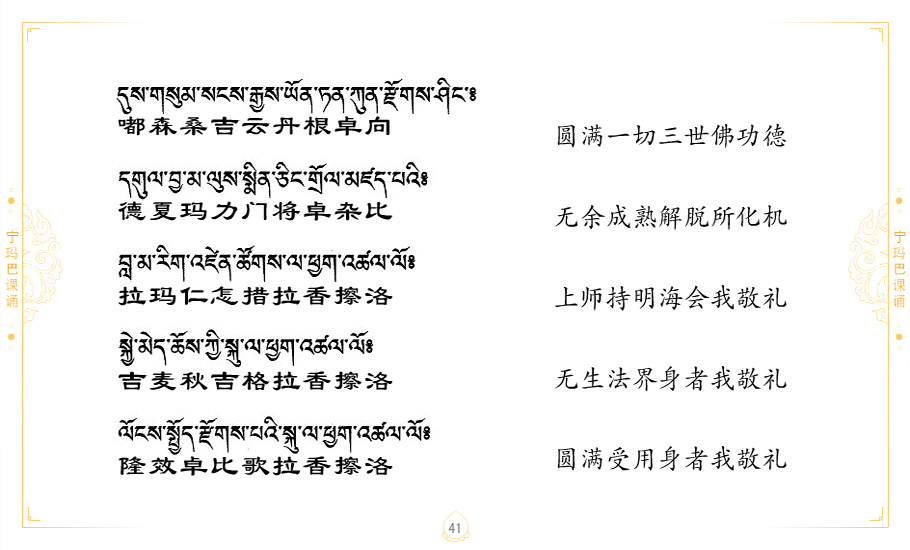 དུས་གསུམ་སངས་རྒྱས་ཡོན་ཏན་ཀུན་རྫོགས་ཤིང་༔
嘟森桑吉云丹根卓向
圆满一切三世佛功德
དགུལ་བྱ་མ་ལུས་སྨིན་ཅིང་གྲོལ་མཛད་པའི༔
德夏玛力门将卓杂比
无余成熟解脱所化机
བླ་མ་རིག་འཛིན་ཚོགས་ལ་ཕྱག་འཚལ་ལོ༔
拉玛仁怎措拉香擦洛
上师持明海会我敬礼
སྐྱེ་མེད་ཆོས་ཀྱི་སྐུ་ལ་ཕྱག་འཚལ་ལོ༔
吉麦秋吉格拉香擦洛
无生法界身者我敬礼
ལོངས་སྤྱོད་རྫོགས་པའི་སྐུ་ལ་ཕྱག་འཚལ་ལོ༔
隆效卓比歌拉香擦洛
圆满受用身者我敬礼
宁玛巴课诵
宁玛巴课诵
41